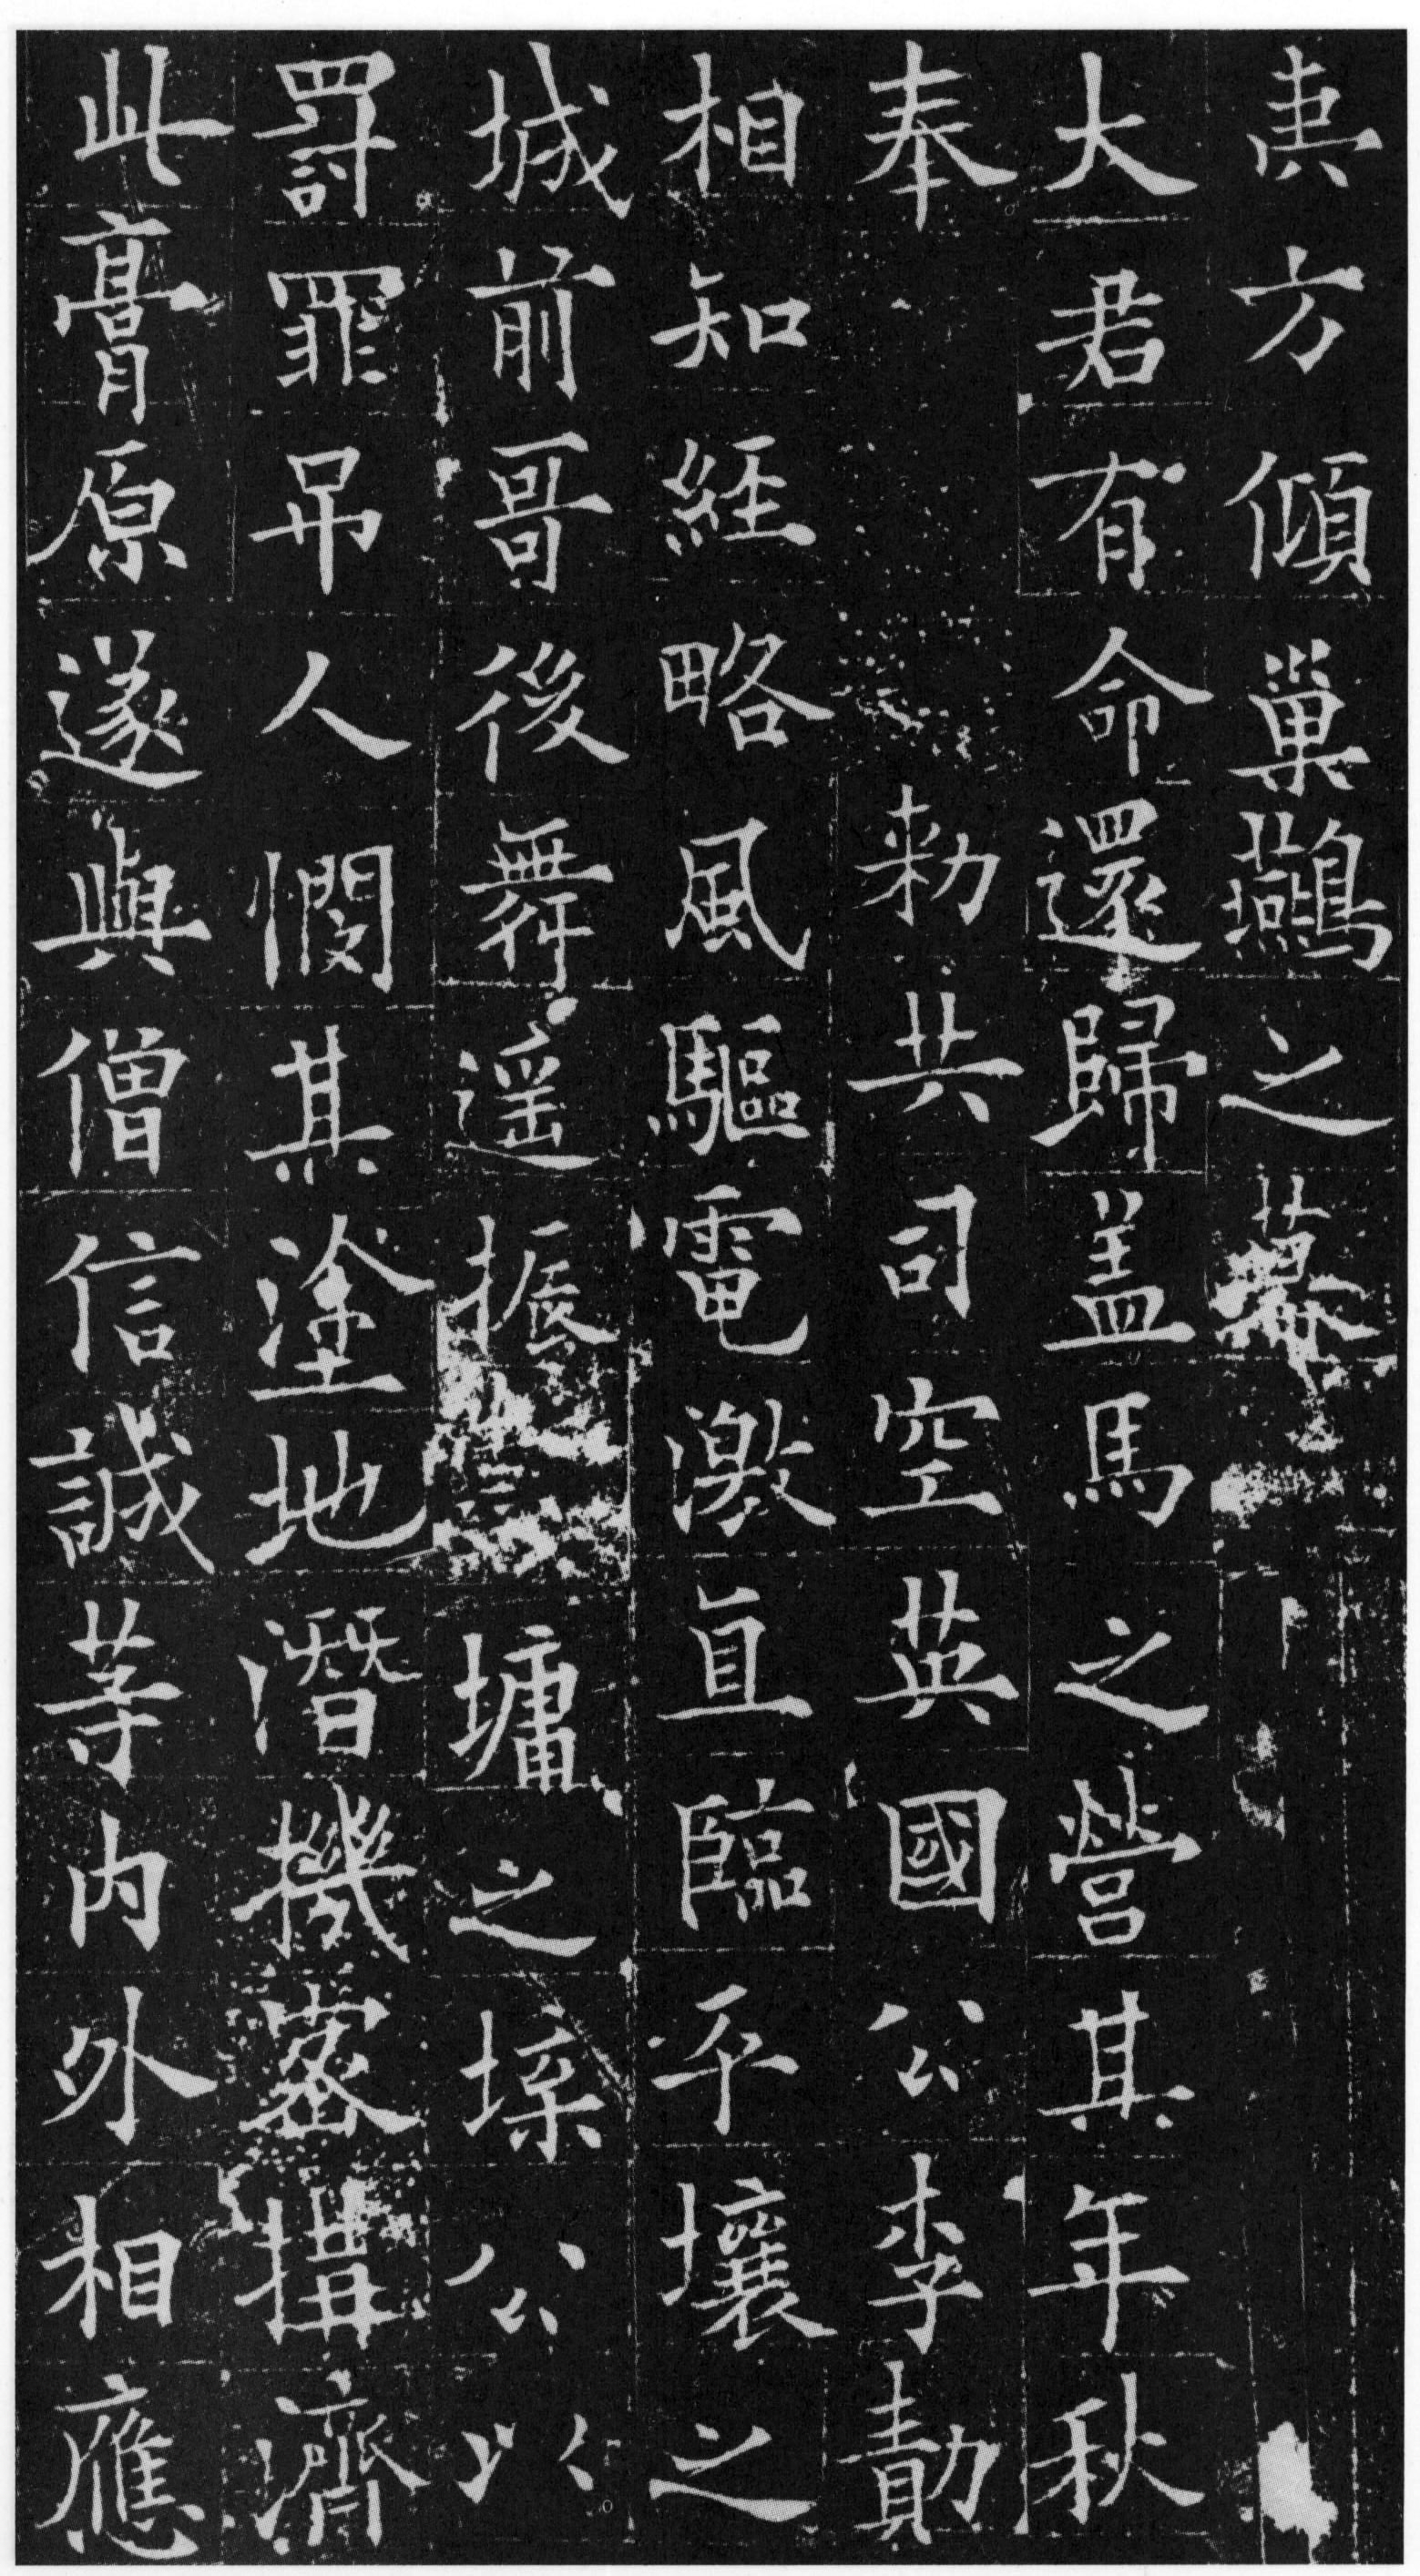 夷方傾巢鷰之幕
大君有命還歸盖馬之營其年秋
奉勑共司空英國公李勣
相知經略風驅電激直臨平壤之
城前哥後舞遥振墉之埰公以
罸罪吊人憫其塗地潛機蜜搆濟
此膏原遂與僧信誠等内外相應